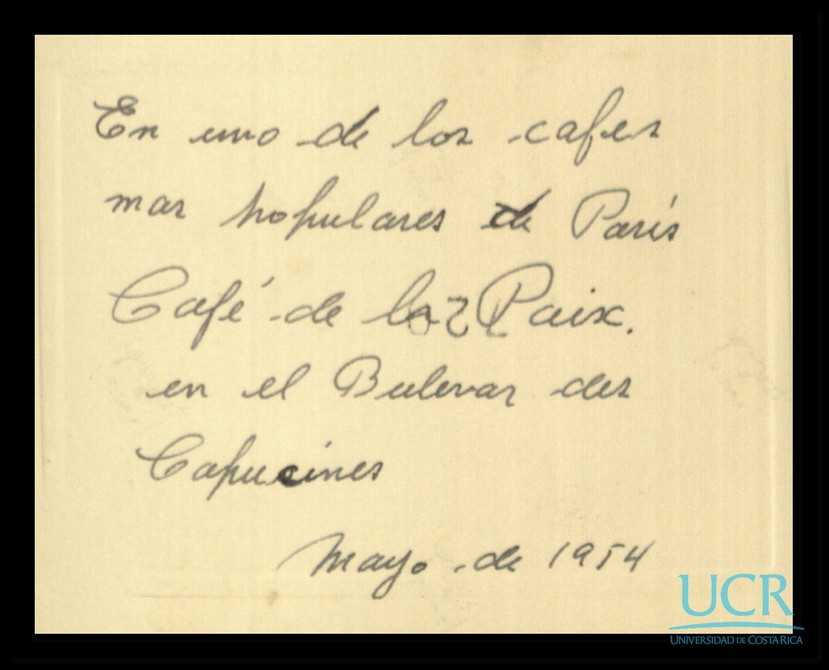 En uno de los cafes
mas populares de París
Café de la Paix.
en el Bulevar des
Capucines
Mayo de 1954
UCR
UNIVERSIDAD DE COSTA RICA